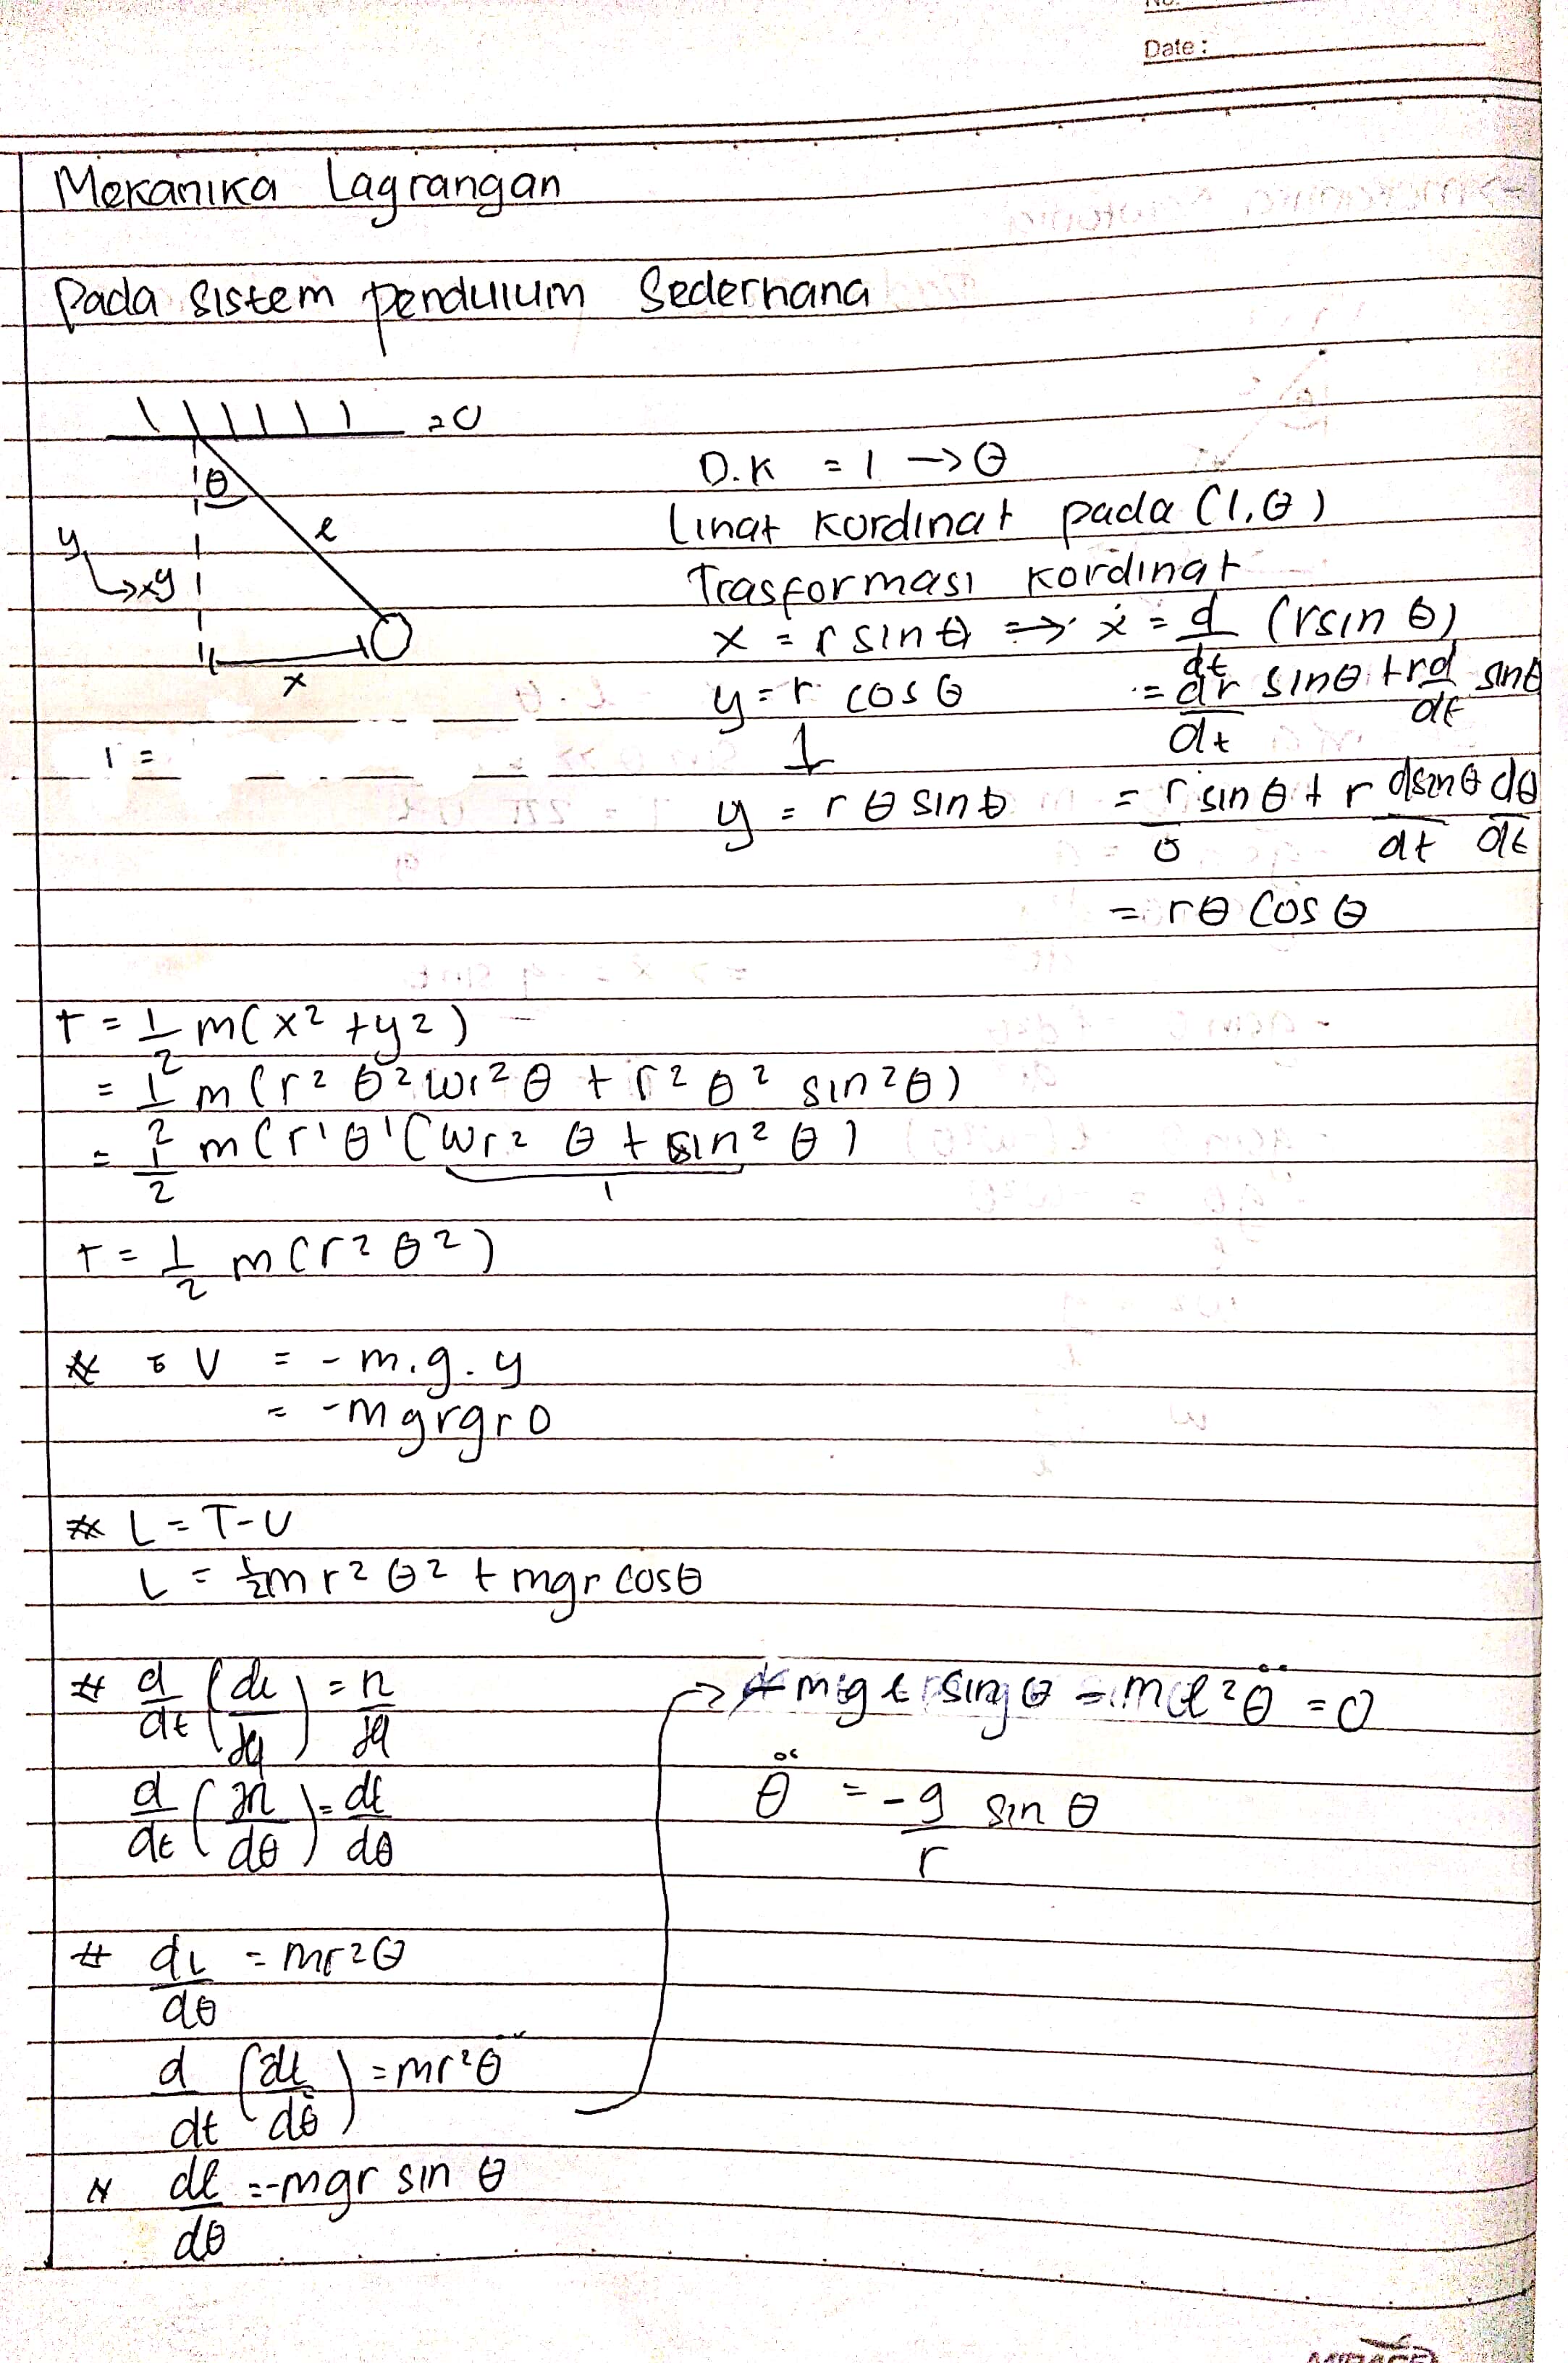 Date :
Mekanika Lagrangan
Pada sistem pendulum Sederhana
= 0
θ
l
y
→x y
x
1 =
D.K = 1 → θ
Linat kordinat pada (l, θ)
Trasformasi kordinat
x = r sin θ ⇒ ẋ = d/dt (r sin θ)
= dr/dt sin θ + r d/dt sin θ
y = r cos θ
y = r θ sin θ
= r sin θ + r dsin θ/dt dθ/dt
0
= r θ cos θ
T = 1/2 m(x² + y²)
= 1/2 m(r² θ² wr² θ + r² θ² sin² θ)
= 1/2 m(r' θ' (wr² θ + sin² θ)
1
T = 1/2 m(r² θ²)
V = - m.g.y
= - m g r g r 0
L = T - U
L = 1/2 m r² θ² + mgr cos θ
# d/dt (dL/∂q) = n/∂q
d/dt (∂n/dθ) = dL/dθ
# dL/dθ = mr² θ
d/dt (∂L/dθ̇) = mr² θ̈
dl/dθ = -mgr sin θ
→ m g l sin θ - m l² θ̈ = 0
θ̈ = - g/r sin θ